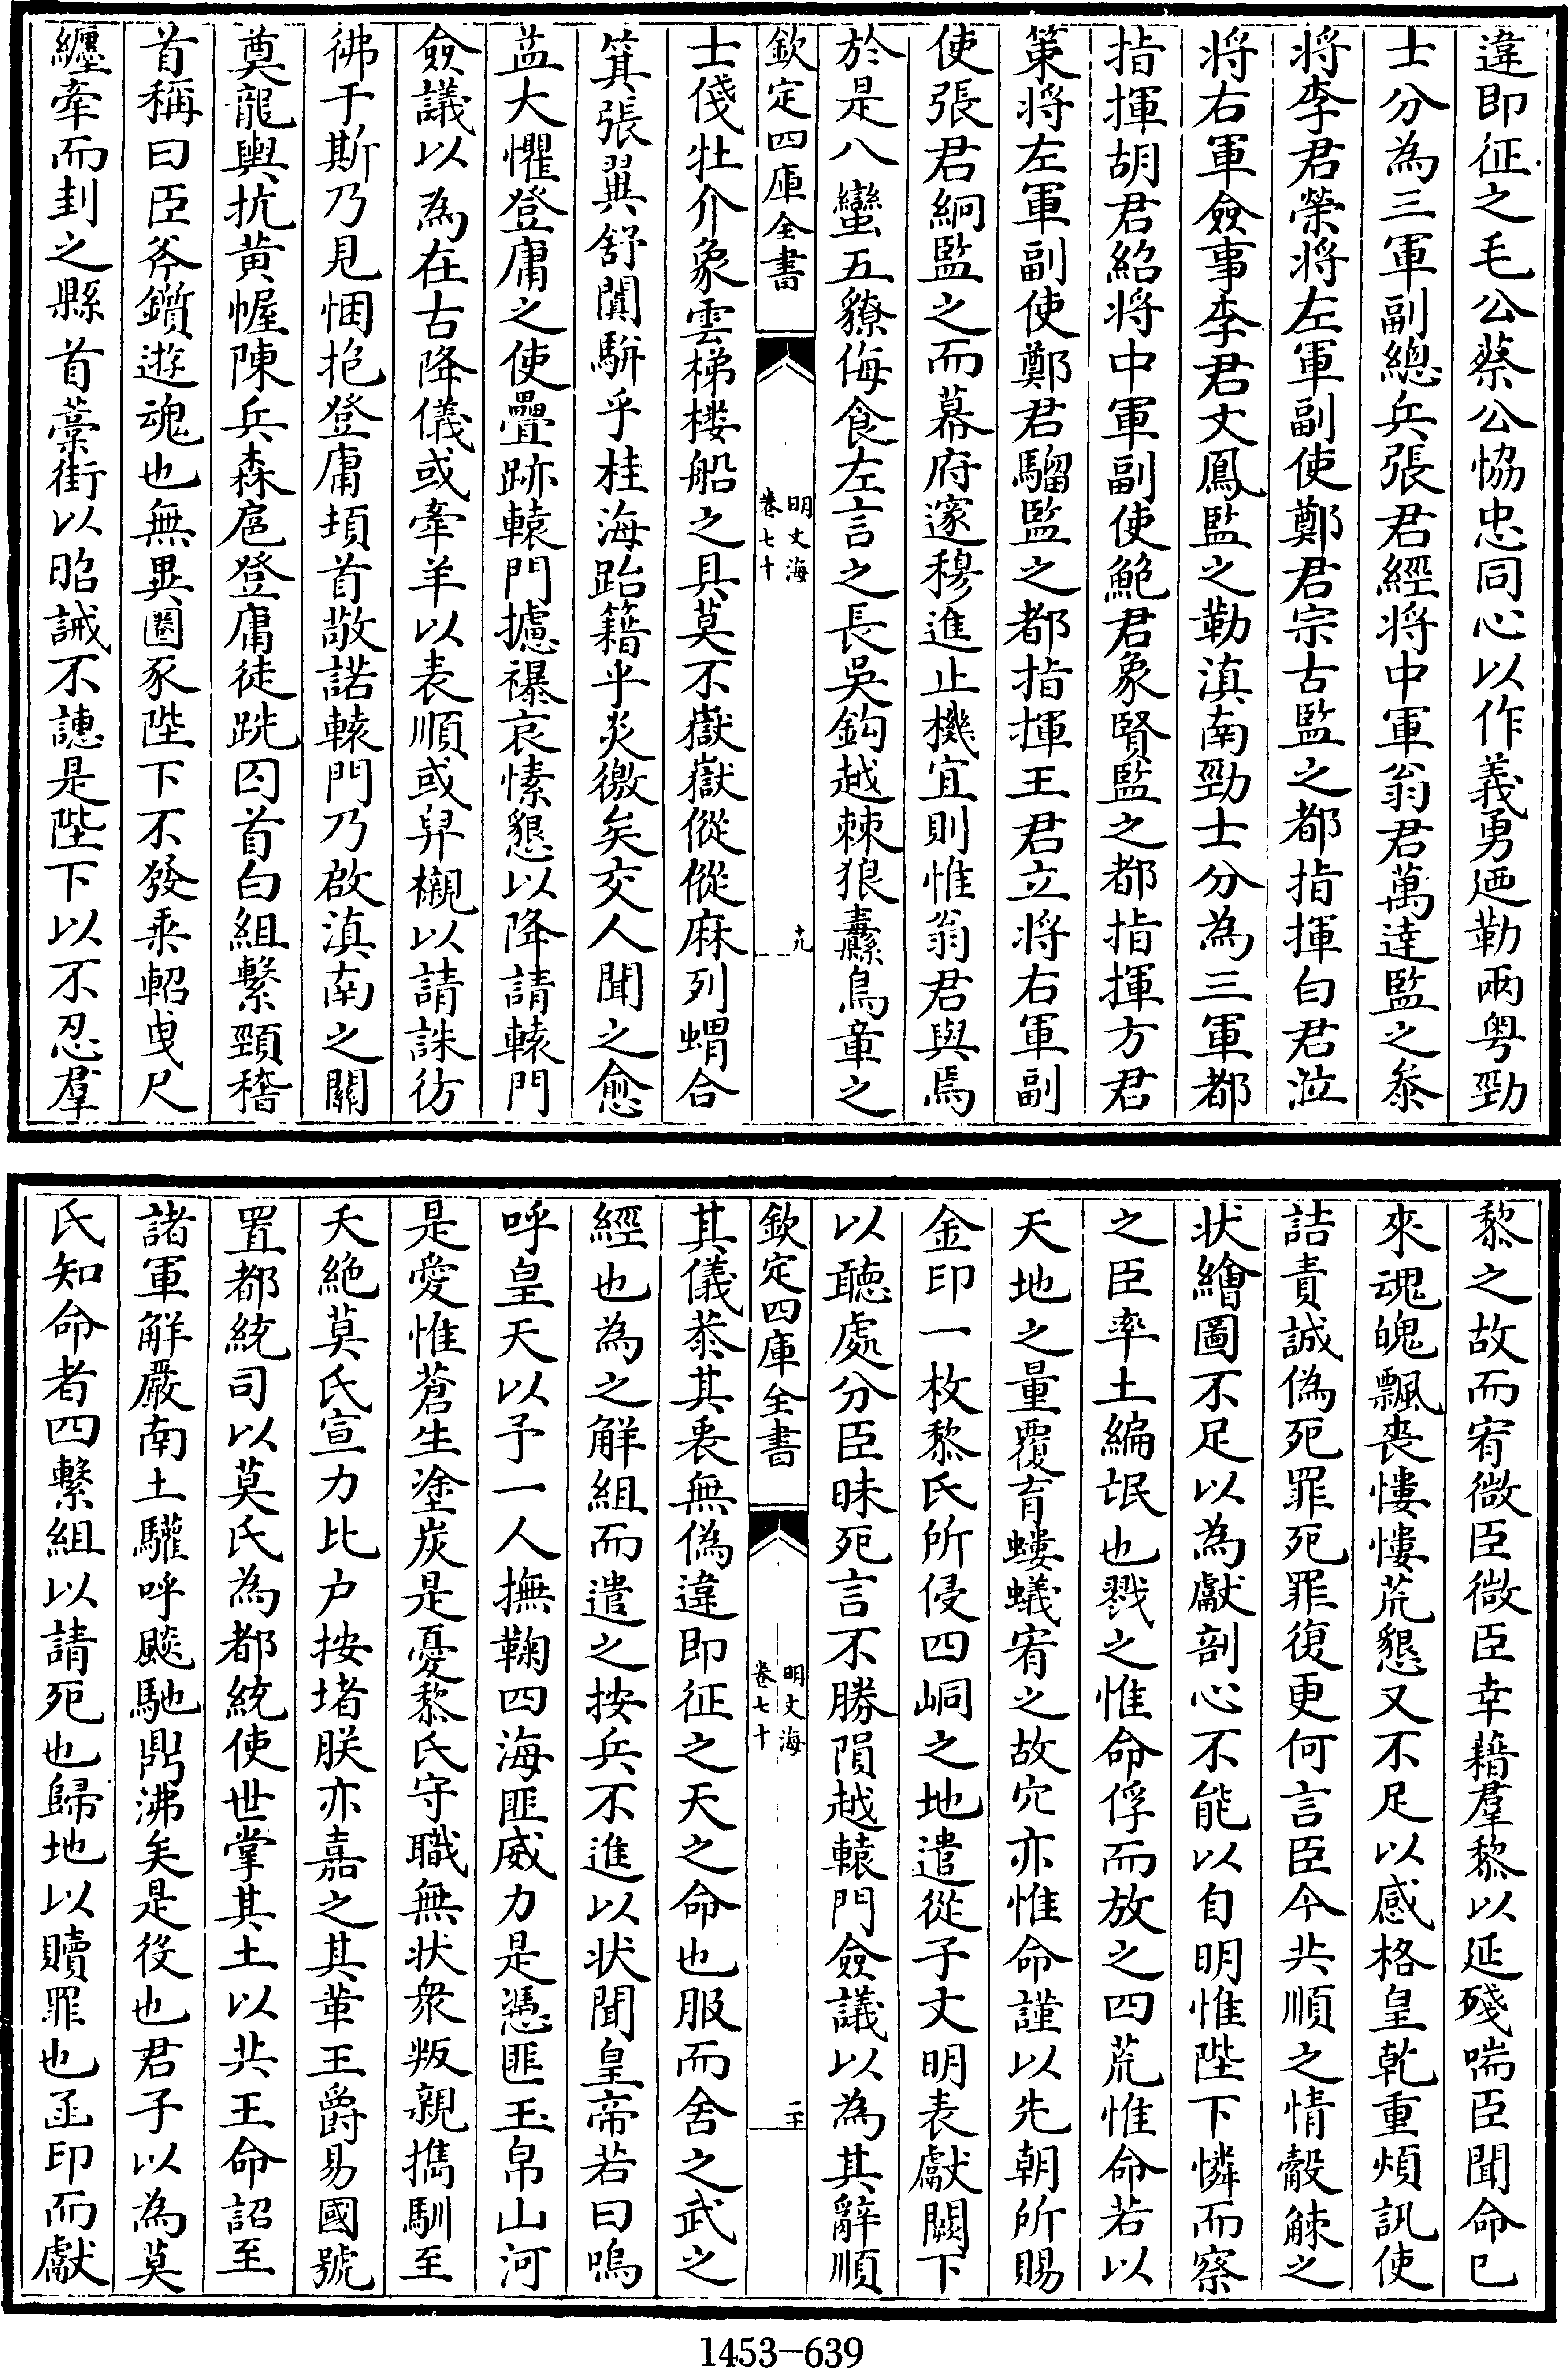 違即征之毛公蔡公恊忠同心以作義勇廼勒兩粤勁
士分為三軍副總兵張君經将中軍翁君萬逹監之叅
将李君榮将左軍副使鄭君宗古監之都指揮白君泣
将右軍僉事李君文鳳監之勒滇南勁士分為三軍都
指揮胡君紹将中軍副使鮑君象賢監之都指揮方君
策将左軍副使鄭君騮監之都指揮王君立将右軍副
使張君絅監之而幕府邃穆進止機宜則惟翁君與焉
於是八蠻五獠侮食左言之長吳鈎越棘狼纛鳥章之
欽定四庫全書
明文海
卷七十
十九
士俴牡介象雲梯楼船之具莫不嶽嶽傱傱麻列蝟合
箕張翼舒闐駢乎桂海跆籍乎炎徼矣交人聞之愈
益大懼登庸之使疊跡轅門攄襮哀愫懇以降請轅門
僉議以為在古降儀或牽羊以表順或舁櫬以請誅彷
彿于斯乃見悃抱登庸頓首敬諾轅門乃啟滇南之關
奠龍輿抗黄幄陳兵森扈登庸徒跣囚首白組繫頸稽
首稱曰臣斧鑕逰魂也無異圈豕陛下不發乘軺曵尺
纏牽而封之縣首藁街以昭誡不譓是陛下以不忍羣
黎之故而宥微臣微臣幸藉羣黎以延殘喘臣聞命已
來魂魄飄喪慺慺荒懇又不足以感格皇乾重煩訊使
詰責誠偽死罪死罪復更何言臣今共順之情觳觫之
状繪圖不足以為獻剖心不能以自明惟陛下憐而察
之臣率土編氓也戮之惟命俘而放之四荒惟命若以
天地之量覆育螻蟻宥之故宂亦惟命謹以先朝所賜
金印一枚黎氏所侵四峒之地遣從子文明表獻闕下
以聽處分臣昧死言不勝隕越轅門僉議以為其辭順
欽定四庫全書
明文海
卷七十
二十
其儀恭其衷無偽違即征之天之命也服而舍之武之
經也為之解組而遣之按兵不進以状聞皇帝若曰嗚
呼皇天以予一人撫鞠四海匪威力是慿匪玉帛山河
是愛惟蒼生塗炭是憂黎氏守職無状衆叛親擕馴至
夭絶莫氏宣力比户按堵朕亦嘉之其革王爵易國號
置都統司以莫氏為都統使世掌其土以共王命詔至
諸軍解嚴南土驩呼飈馳鼎沸矣是役也君子以為莫
氏知命者四繫組以請死也歸地以贖罪也函印而獻
1453-639